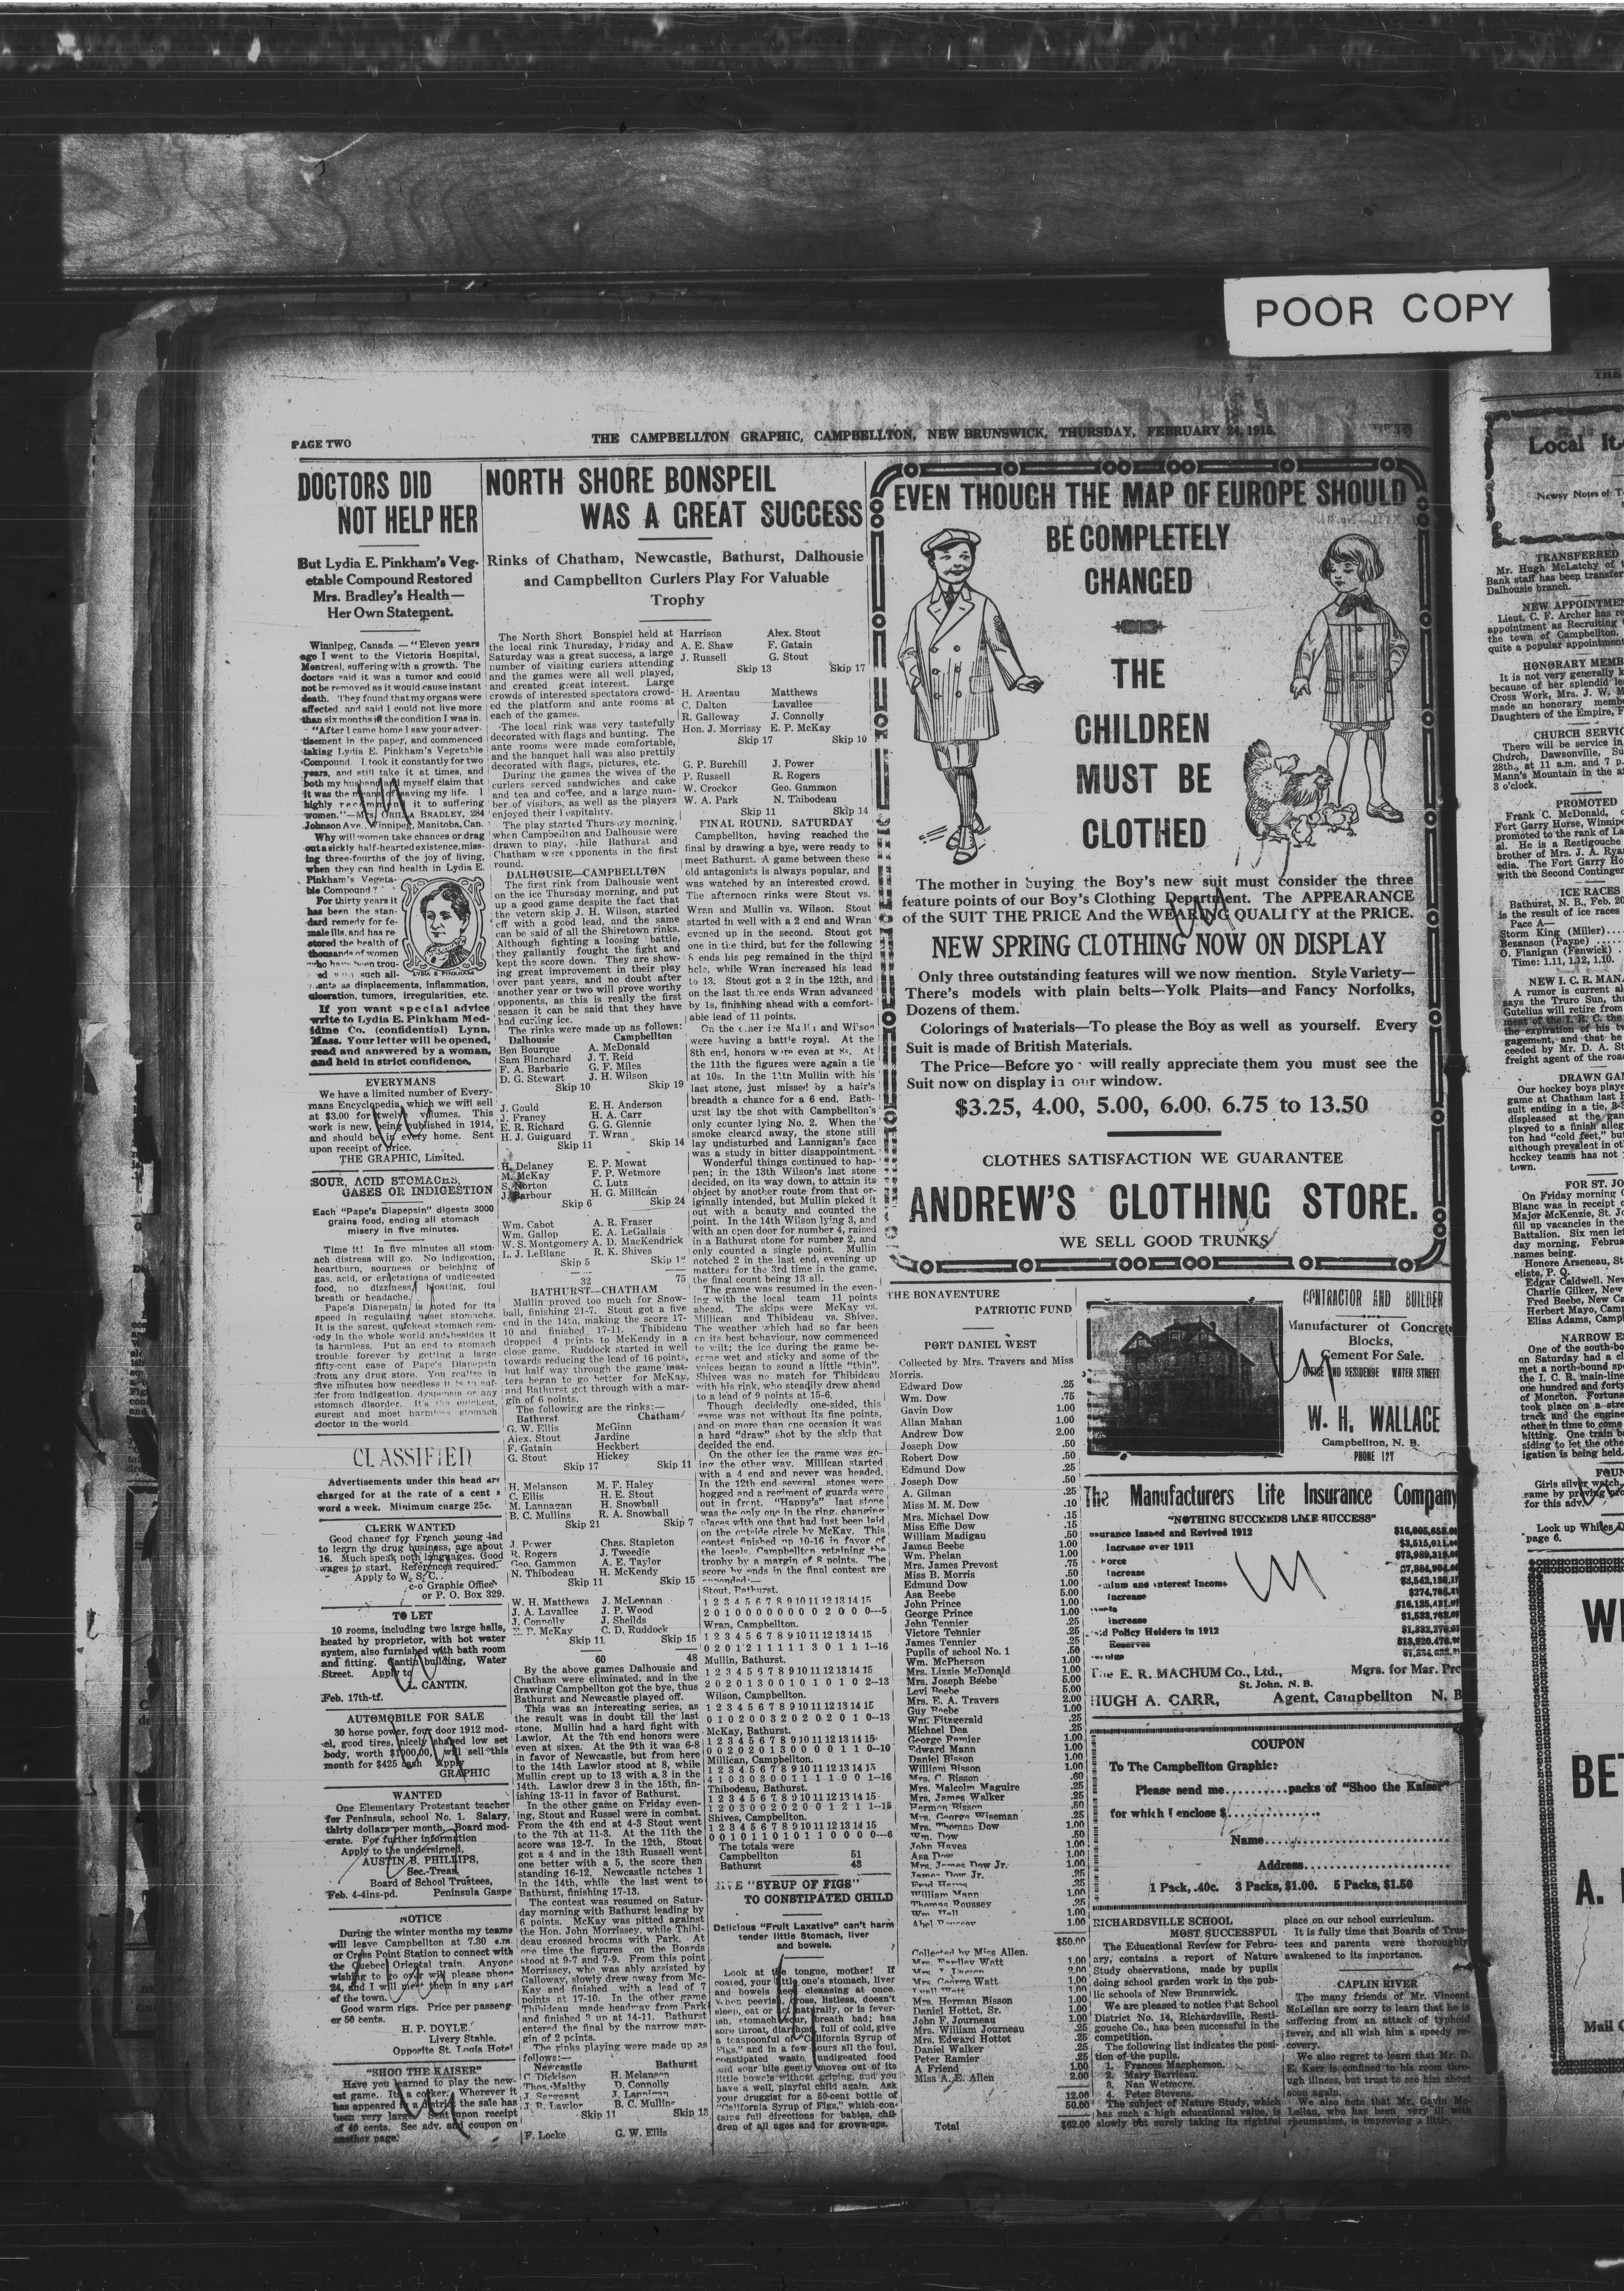 POOR COPY
PAGE TWO
THE CAMPBELLTON GRAPHIC, CAMPBELLTON, NEW BRUNSWICK, THURSDAY, FEBRUARY 24, 1915.
DOCTORS DID
NOT HELP HER
But Lydia E. Pinkham's Veg-
etable Compound Restored
Mrs. Bradley's Health—
Her Own Statement.
Winnipeg, Canada — "Eleven years
ago I went to the Victoria Hospital,
Montreal, suffering with a growth. The
doctors said it was a tumor and could
not be removed as it would cause instant
death. They found that my organs were
affected, and said I could not live more
than six months in the condition I was in.
"After I came home I saw your adver-
tisement in the paper, and commenced
taking Lydia E. Pinkham's Vegetable
Compound. I took it constantly for two
years, and still take it at times, and
both my husband and myself claim that
it was the means of saving my life. I
highly recommend it to suffering
women."—Mrs. ORILLA BRADLEY, 284
Johnson Ave., Winnipeg, Manitoba, Can.
Why will women take chances or drag
out a sickly half-hearted existence, miss-
ing three-fourths of the joy of living,
when they can find health in Lydia E.
Pinkham's Vegeta-
ble Compound?
For thirty years it
has been the stan-
dard remedy for fe-
male ills, and has re-
stored the health of
thousands of women
who have been trou-
ed with such ail-
ments as displacements, inflammation,
ulceration, tumors, irregularities, etc.
If you want special advice
write to Lydia E. Pinkham Med-
icine Co. (confidential) Lynn,
Mass. Your letter will be opened,
read and answered by a woman,
and held in strict confidence.
EVERYMANS
We have a limited number of Every-
mans Encyclopedia, which we will sell
at $3.00 for twelve volumes. This
work is new, being published in 1914,
and should be in every home. Sent
upon receipt of price.
THE GRAPHIC, Limited.
SOUR, ACID STOMACHS,
GASES OR INDIGESTION
Each "Pape's Diapepsin" digests 3000
grains food, ending all stomach
misery in five minutes.
Time it! In five minutes all stom-
ach distress will go. No indigestion,
heartburn, sourness or belching of
gas, acid, or eructations of undigested
food, no dizziness, bloating, foul
breath or headache.
Pape's Diapepsin is noted for its
speed in regulating upset stomachs.
It is the surest, quickest stomach rem-
edy in the whole world and besides it
is harmless. Put an end to stomach
trouble forever by getting a large
fifty-cent case of Pape's Diapepsin
from any drug store. You realize in
five minutes how needless it is to suf-
fer from indigestion, dyspepsia or any
stomach disorder. It's the quickest,
surest and most harmless stomach
doctor in the world.
CLASSIFIED
Advertisements under this head are
charged for at the rate of a cent a
word a week. Minimum charge 25c.
CLERK WANTED
Good chance for French young lad
to learn the drug business, age about
16. Much speak both languages. Good
wages to start. References required.
Apply to W. S. C.
c-o Graphic Office
or P. O. Box 329.
TO LET
10 rooms, including two large halls,
heated by proprietor, with hot water
system, also furnished with bath room
and fitting. Cantin building, Water
Street. Apply to
L. CANTIN.
Feb. 17th-tf.
AUTOMOBILE FOR SALE
30 horse power, four door 1912 mod-
el, good tires, nicely shaped low set
body, worth $1000.00, will sell this
month for $425 cash Apply
GRAPHIC
WANTED
One Elementary Protestant teacher
for Peninsula, school No. 1. Salary,
thirty dollars per month. Board mod-
erate. For further information
Apply to the undersigned,
AUSTIN B. PHILLIPS,
Sec.-Treas,
Board of School Trustees,
Feb. 4-4ins-pd. Peninsula Gaspe
NOTICE
During the winter months my teams
will leave Campbellton at 7.30 a.m.
or Cross Point Station to connect with
the Quebec Oriental train. Anyone
wishing to go over will please phone
24, and I will meet them in any part
of the town.
Good warm rigs. Price per passeng-
er 50 cents.
H. P. DOYLE,
Livery Stable.
Opposite St. Louis Hotel
"SHOO THE KAISER"
Have you learned to play the new-
est game. It's a corker. Wherever it
has appeared in a district the sale has
been very large. Sent upon receipt
of 40 cents. See adv. and coupon on
another page.
NORTH SHORE BONSPEIL
WAS A GREAT SUCCESS
Rinks of Chatham, Newcastle, Bathurst, Dalhousie
and Campbellton Curlers Play For Valuable
Trophy
The North Short Bonspiel held at
the local rink Thursday, Friday and
Saturday was a great success, a large
number of visiting curlers attending
and the games were all well played,
and created great interest. Large
crowds of interested spectators crowd-
ed the platform and ante rooms at
each of the games.
The local rink was very tastefully
decorated with flags and bunting. The
ante rooms were made comfortable,
and the banquet hall was also prettily
decorated with flags, pictures, etc.
During the games the wives of the
curlers served sandwiches and cake
and tea and coffee, and a large num-
ber of visitors, as well as the players
enjoyed their hospitality.
The play started Thursday morning,
when Campbellton and Dalhousie were
drawn to play, while Bathurst and
Chatham were opponents in the first
round.
DALHOUSIE—CAMPBELLTON
The first rink from Dalhousie went
on the ice Thursday morning, and put
up a good game despite the fact that
the vetern skip J. H. Wilson, started
off with a good lead, and the same
can be said of all the Shiretown rinks.
Although fighting a loosing battle,
they gallantly fought the fight and
kept the score down. They are show-
ing great improvement in their play
over past years, and no doubt after
another year or two will prove worthy
opponents, as this is really the first
season it can be said that they have
had curling ice.
The rinks were made up as follows:
Dalhousie Campbellton
Ben Bourque A. McDonald
Sam Blanchard J. T. Reid
F. A. Barbarie G. F. Miles
D. G. Stewart J. H. Wilson
Skip 10 Skip 19
J. Gould E. H. Anderson
J. Francy H. A. Carr
E. R. Richard G. G. Glennie
H. J. Guiguard T. Wran
Skip 11 Skip 14
H. Delaney E. P. Mowat
M. McKay F. P. Wetmore
S. Norton C. Lutz
J. Barbour H. G. Millican
Skip 6 Skip 24
Wm. Cabot A. R. Fraser
Wm. Gallop E. A. LeGallais
W. S. Montgomery A. D. MacKendrick
L. J. LeBlanc R. K. Shives
Skip 5 Skip
32 75
BATHURST—CHATHAM
Mullin proved too much for Snow-
ball, finishing 21-7. Stout got a five
end in the 14th, making the score 17-
10 and finished 17-11. Thibideau
dropped 4 points to McKendy in a
close game. Ruddock started in well
towards reducing the lead of 16 points,
but half way through the game mat-
ters began to go better for McKay,
and Bathurst got through with a mar-
gin of 6 points.
The following are the rinks:—
Bathurst Chatham
G. W. Ellis McGinn
Alex. Stout Jardine
F. Gatain Heckbert
G. Stout Hickey
Skip 17 Skip 11
H. Melanson M. F. Haley
C. Ellis H. E. Stout
M. Lannagan H. Snowball
B. C. Mullins R. A. Snowball
Skip 21 Skip 7
J. Power Chas. Stapleton
R. Rogers J. Tweedie
Geo. Gammon A. E. Taylor
N. Thibodeau H. McKendy
Skip 11 Skip 15
W. H. Matthews J. McLennan
J. A. Lavallee J. P. Wood
J. Connolly J. Sheilds
E. P. McKay C. D. Ruddock
Skip 11 Skip 15
60 48
By the above games Dalhousie and
Chatham were eliminated, and in the
drawing Campbellton got the bye, thus
Bathurst and Newcastle played off.
This was an interesting series, as
the result was in doubt till the last
stone. Mullin had a hard fight with
Lawlor. At the 7th end honors were
even at sixes. At the 9th it was 6-8
in favor of Newcastle, but from here
to the 14th Lawlor stood at 8, while
Mullin crept up to 13 with a 3 in the
14th. Lawlor drew 3 in the 15th, fin-
ishing 13-11 in favor of Bathurst.
In the other game on Friday even-
ing, Stout and Russel were in combat.
From the 4th end at 4-3 Stout went
to the 7th at 11-3. At the 11th the
score was 12-7. In the 12th, Stout
got a 4 and in the 13th Russell went
one better with a 5, the score then
standing 16-12. Newcastle notches 1
in the 14th, while the last went to
Bathurst, finishing 17-13.
The contest was resumed on Satur-
day morning with Bathurst leading by
6 points. McKay was pitted against
the Hon. John Morrissey, while Thibi-
deau crossed brooms with Park. At
one time the figures on the Boards
stood at 9-7 and 7-9. From this point
Morrissey, who was ably assisted by
Galloway, slowly drew away from Mc-
Kay and finished with a lead of 7
points at 17-10. In the other game
Thibideau made headway from Park
and finished 3 up at 14-11. Bathurst
entered the final by the narrow mar-
gin of 2 points.
The rinks playing were made up as
follows:—
Newcastle Bathurst
C. Dickison H. Melanson
Thos. Malthy D. Connolly
J. Sargeant J. Lannigan
J. R. Lawlor B. C. Mullins
Skip 11 Skip 13
F. Locke G. W. Ellis
Harrison Alex. Stout
A. E. Shaw F. Gatain
J. Russell G. Stout
Skip 13 Skip 17
H. Arsentau Matthews
C. Dalton Lavallee
R. Galloway J. Connolly
Hon. J. Morrissy E. P. McKay
Skip 17 Skip 10
G. P. Burchill J. Power
P. Russell R. Rogers
W. Crocker Geo. Gammon
W. A. Park N. Thibodeau
Skip 11 Skip 14
FINAL ROUND, SATURDAY
Campbellton, having reached the
final by drawing a bye, were ready to
meet Bathurst. A game between these
old antagonists is always popular, and
was watched by an interested crowd.
The afternoon rinks were Stout vs.
Wran and Mullin vs. Wilson. Stout
started in well with a 2 end and Wran
evened up in the second. Stout got
one in the third, but for the following
8 ends his peg remained in the third
hole, while Wran increased his lead
to 13. Stout got a 2 in the 12th, and
on the last three ends Wran advanced
by 1s, finishing ahead with a comfort-
able lead of 11 points.
On the other ice Mullin and Wilson
were having a battle royal. At the
8th end, honors were even at 8s. At
the 11th the figures were again a tie
at 10s. In the 11th Mullin with his
last stone, just missed by a hair's
breadth a chance for a 6 end. Bath-
urst lay the shot with Campbellton's
only counter lying No. 2. When the
smoke cleared away, the stone still
lay undisturbed and Lannigan's face
was a study in bitter disappointment.
Wonderful things continued to hap-
pen; in the 13th Wilson's last stone
decided, on its way down, to attain its
object by another route from that or-
iginally intended, but Mullin picked it
out with a beauty and counted the
point. In the 14th Wilson lying 3, and
with an open door for number 4, raised
in a Bathurst stone for number 2, and
only counted a single point. Mullin
notched 2 in the last end, evening up
matters for the 3rd time in the game,
the final count being 13 all.
The game was resumed in the even-
ing with the local team 11 points
ahead. The skips were McKay vs.
Millican and Thibideau vs. Shives.
The weather which had so far been
on its best behaviour, now commenced
to wilt; the ice during the game be-
came wet and sticky and some of the
voices began to sound a little "thin".
Shives was no match for Thibideau
with his rink, who steadily drew ahead
to a lead of 9 points at 15-6.
Though decidedly one-sided, this
game was not without its fine points,
and on more than one occasion it was
a hard "draw" shot by the skip that
decided the end.
On the other ice the game was go-
ing the other way. Millican started
with a 4 end and never was headed.
In the 12th end several stones were
hogged and a regiment of guards were
out in front. "Happy's" last stone
was the only one in the ring, changing
places with one that had just been laid
on the outside circle by McKay. This
contest finished up 10-16 in favor of
the locals, Campbellton retaining the
trophy by a margin of 8 points. The
score by ends in the final contest are
appended:—
Stout, Bathurst.
1 2 3 4 5 6 7 8 9 10 11 12 13 14 15
2 0 1 0 0 0 0 0 0 0 0 2 0 0 0—5
Wran, Campbellton.
1 2 3 4 5 6 7 8 9 10 11 12 13 14 15
0 2 0 1 2 1 1 1 1 1 3 0 1 1 1—16
Mullin, Bathurst.
1 2 3 4 5 6 7 8 9 10 11 12 13 14 15
2 0 2 0 1 3 0 0 1 0 1 0 1 0 2—13
Wilson, Campbellton.
1 2 3 4 5 6 7 8 9 10 11 12 13 14 15
0 1 0 2 0 0 3 2 0 2 0 2 0 1 0—13
McKay, Bathurst.
1 2 3 4 5 6 7 8 9 10 11 12 13 14 15
0 0 2 0 2 0 1 3 0 0 0 0 1 1 0—10
Millican, Campbellton.
1 2 3 4 5 6 7 8 9 10 11 12 13 14 15
4 1 0 3 0 3 0 0 1 1 1 1 0 0 1—16
Thibodeau, Bathurst.
1 2 3 4 5 6 7 8 9 10 11 12 13 14 15
1 2 0 3 0 0 2 0 2 0 0 1 2 1 1—15
Shives, Campbellton.
1 2 3 4 5 6 7 8 9 10 11 12 13 14 15
0 0 1 0 1 1 0 1 0 1 1 0 0 0 0—6
The totals were
Campbellton 51
Bathurst 43
GIVE "SYRUP OF FIGS"
TO CONSTIPATED CHILD
Delicious "Fruit Laxative" can't harm
tender little Stomach, liver
and bowels.
Look at the tongue, mother! If
coated, your little one's stomach, liver
and bowels need cleansing at once.
When peevish, cross, listless, doesn't
sleep, eat or act naturally, or is fever-
ish, stomach sour, breath bad; has
sore throat, diarrhoea, full of cold, give
a teaspoonful of "California Syrup of
Figs," and in a few hours all the foul,
constipated waste, undigested food
and sour bile gently moves out of its
little bowels without griping, and you
have a well, playful child again. Ask
your druggist for a 50-cent bottle of
"California Syrup of Figs," which con-
tains full directions for babies, chil-
dren of all ages and for grown-ups.
EVEN THOUGH THE MAP OF EUROPE SHOULD
BE COMPLETELY
CHANGED
THE
CHILDREN
MUST BE
CLOTHED
The mother in buying the Boy's new suit must consider the three
feature points of our Boy's Clothing Department. The APPEARANCE
of the SUIT THE PRICE And the WEARING QUALITY at the PRICE.
NEW SPRING CLOTHING NOW ON DISPLAY
Only three outstanding features will we now mention. Style Variety—
There's models with plain belts—Yolk Plaits—and Fancy Norfolks,
Dozens of them.
Colorings of Materials—To please the Boy as well as yourself. Every
Suit is made of British Materials.
The Price—Before you will really appreciate them you must see the
Suit now on display in our window.
$3.25, 4.00, 5.00, 6.00, 6.75 to 13.50
CLOTHES SATISFACTION WE GUARANTEE
ANDREW'S CLOTHING STORE.
WE SELL GOOD TRUNKS
THE BONAVENTURE
PATRIOTIC FUND
PORT DANIEL WEST
Collected by Mrs. Travers and Miss
Morris.
Edward Dow .25
Wm. Dow .75
Gavin Dow 1.00
Allan Mahan 1.00
Andrew Dow 2.00
Joseph Dow .50
Robert Dow .50
Edmund Dow .25
Joseph Dow .50
A. Gilman .25
Miss M. M. Dow .10
Mrs. Michael Dow .15
Miss Effie Dow .15
William Madigau .50
James Beebe 1.00
Wm. Phelan 1.00
Mrs. James Prevost .75
Miss B. Morris .50
Edmund Dow 1.00
Asa Beebe 5.00
John Prince 1.00
George Prince 1.00
John Tennier .25
Victore Tennier .25
James Tennier .25
Pupils of school No. 1 .50
Wm. McPherson 1.00
Mrs. Lizzie McDonald 1.00
Mrs. Joseph Beebe 5.00
Levi Beebe 5.00
Mrs. E. A. Travers 2.00
Guy Beebe 1.00
Wm. Fitzgerald .25
Michael Dea .25
George Ramier 1.00
Edward Mann 1.00
Daniel Bisson 1.00
William Bisson 1.00
Mrs. C. Bisson .60
Mrs. Malcolm Maguire .25
Mrs. James Walker .25
Herman Bisson .50
Mrs. George Wiseman .25
Mrs. Thomas Dow 1.00
Wm. Dow .50
John Hayes 1.00
Asa Dow 1.00
Mrs. James Dow Jr. 1.00
James Dow Jr. .25
William Mann
Thomas Roussey
Wm. Bell
1.00
$50.00
Collected by Miss Allen.
Mrs. Bardley Watt 1.00
Mrs. George Watt 1.00
Mrs. Herman Bisson 1.00
Daniel Hottot, Sr. 1.00
John F. Journeau 1.00
Mrs. William Journeau .25
Mrs. Edward Hottot .25
Daniel Walker .25
Peter Ramier .25
A Friend 1.00
Miss A. E. Allen 2.00
12.00
50.00
Total $62.00
CONTRACTOR AND BUILDER
Manufacturer of Concrete
Blocks,
Cement For Sale.
OFFICE AND RESIDENSE WATER STREET
W. H. WALLACE
Campbellton, N. B.
PHONE 127
The Manufacturers Life Insurance Company
"NOTHING SUCCEEDS LIKE SUCCESS"
Insurance Issued and Revived 1912
Increase over 1911 $3,515,011
Increase
Premium and Interest Income
Increase
Increase
Paid Policy Holders in 1912
Reserves
The E. R. MACHUM Co., Ltd., Mgrs. for Mar. Pro
St. John, N. B.
HUGH A. CARR, Agent, Campbellton N. B
COUPON
To The Campbellton Graphic:
Please send me..........packs of "Shoo the Kaiser"
for which I enclose $..............
Name..............................
Address........................
1 Pack, .40c. 3 Packs, $1.00. 5 Packs, $1.50
RICHARDSVILLE SCHOOL
MOST SUCCESSFUL
The Educational Review for Febru-
ary, contains a report of Nature
Study observations, made by pupils
doing school garden work in the pub-
lic schools of New Brunswick.
We are pleased to notice that School
District No. 14, Richardsville, Resti-
gouche Co., has been successful in the
competition.
The following list indicates the posi-
tion of the pupils.
1. Frances Macpherson.
2. Mary Barrieau.
3. Nan Wetmore.
4. Peter Stevens.
The subject of Nature Study, which
has such a high educational value, is
slowly but surely taking its rightful
place on our school curriculum.
It is fully time that Boards of Trus-
tees and parents were thoroughly
awakened to its importance.
CAPLIN RIVER
The many friends of Mr. Vincent
McLellan are sorry to learn that he is
suffering from an attack of typhoid
fever, and all wish him a speedy re-
covery.
We also regret to learn that Mr. D.
E. Kerr is confined to his room thro-
ugh illness, but trust to see him about
soon again.
We also note that Mr. Gavin Mc-
Lellan, who has been very ill with
rheumatism, is improving a little.
THE
Local It
Newsy Notes of T
TRANSFERRED
Mr. Hugh McLatchy of
Bank staff has been transfer
Dalhousie branch.
NEW APPOINTME
Lieut. C. F. Archer has re
appointment as Recruiting
the town of Campbellton.
quite a popular appointment
HONORARY MEMB
It is not very generally k
because of her splendid le
Cross Work, Mrs. J. W. M
made an honorary membe
Daughters of the Empire, F
CHURCH SERVIC
There will be service in
Church, Dawsonville, Su
28th., at 11 a.m. and 7 p.
Mann's Mountain in the a
3 o'clock.
PROMOTED
Frank C. McDonald,
Fort Garry Horse, Winnipe
promoted to the rank of La
al. He is a Restigouche
brother of Mrs. J. A. Rya
edia. The Fort Garry Ho
with the Second Continger
ICE RACES
Bathurst, N. B., Feb. 20
is the result of ice races
Pace A—
Storm King (Miller)....
Bezanson (Payne)
O. Flanigan (Fenwick)
Time: 1.11, 1.12, 1.10.
NEW I. C. R. MAN
A rumor is current al
says the Truro Sun, th
Gutelius will retire from
ment of the I. R. C. the
the expiration of his tw
gagement, and that he
ceeded by Mr. D. A. St
freight agent of the roa
DRAWN GAM
Our hockey boys plays
game at Chatham last E
sult ending in a tie, 3-3
displeased at the gam
played to a finish alleg
ton had "cold feet," bu
although prevalent in ot
hockey teams has not
town.
FOR ST. JO
On Friday morning C
Blanc was in receipt o
Major McKenzie, St. J
fill up vacancies in the
Battalion. Six men lef
day morning, Februa
names being.
Honore Arseneau, St
eliste, P. Q.
Edgar Caldwell, New
Charlie Gilker, New
Fred Beebe, New Ca
Herbert Mayo, Camp
Elias Adams, Campl
NARROW E
One of the south-bo
on Saturday had a cl
met a north-bound sp
the I. C. R. main-line
one hundred and forty
of Moncton. Fortuna
took place on a stre
track and the engine
other in time to come
hitting. One train b
siding to let the othe
igation is being held.
FOUN
Girls silver watch,
same by proving pro
for this adv.
Look up Whites D
page 6.
WE
BET
A. M
Mail O